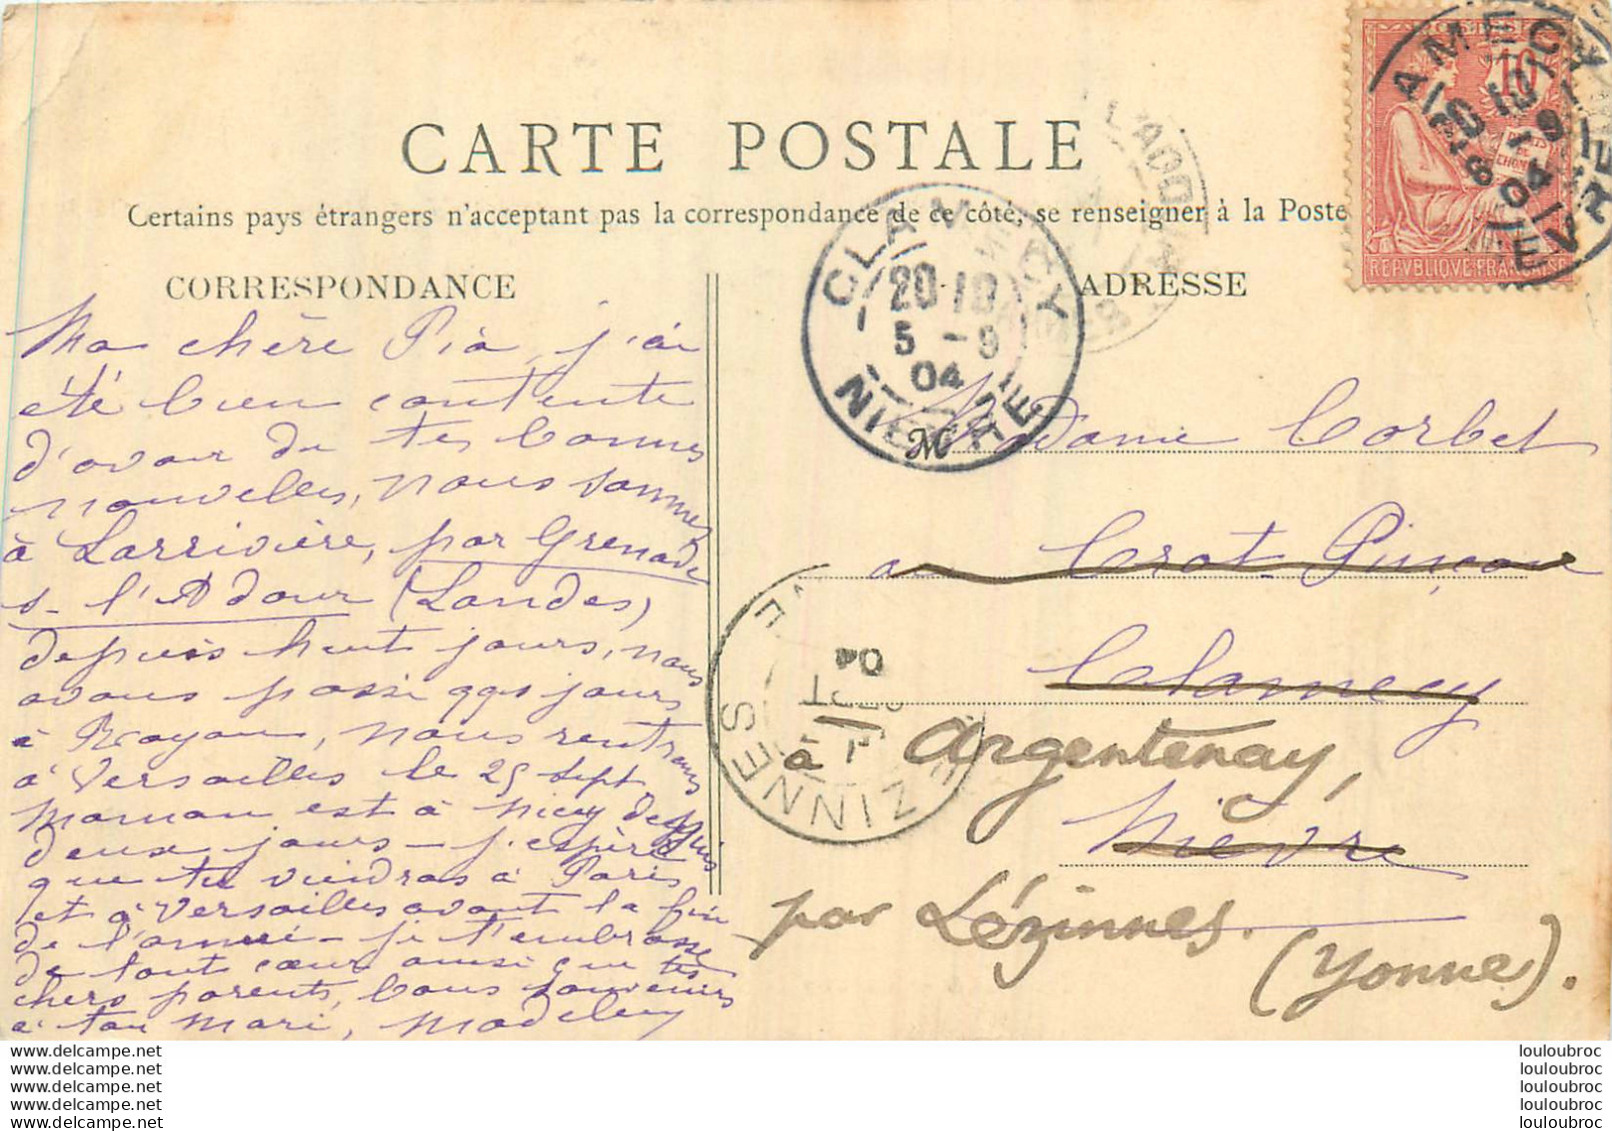 CARTE POSTALE
Certains pays étrangers n'acceptent pas la correspondance de ce côté, se renseigner à la Poste
CORRESPONDANCE
Ma chère Pia, j'ai
été bien contente
d'avoir de tes bonnes
nouvelles, nous sommes
à Larrivière, par Grenade
s- l'Adour (Landes)
depuis huit jours, nous
avons passé qqs jours
à Royan, nous rentrons
à Versailles le 25 Sept.
Maman est à Nicey depuis
deux jours - j'espère
que tu viendras à Paris
et à Versailles avant la fin
de l'année - je t'embrasse
de tout cœur ainsi que tes
chers parents, bons souvenirs
à ton mari, Madeleny
ADRESSE
CLAMECY
20 10
5 - 9
04
NIEVRE
M
Madame Corbet
au Crot-Pinçon
Clamecy
à Argentenay,
Nièvre
par Lézinnes.
(Yonne).
LEZINNES
04
10
REPVBLIQVE FRANÇAISE
www.delcampe.net
www.delcampe.net
www.delcampe.net
www.delcampe.net
www.delcampe.net
louloubroc
louloubroc
louloubroc
louloubroc
louloubroc